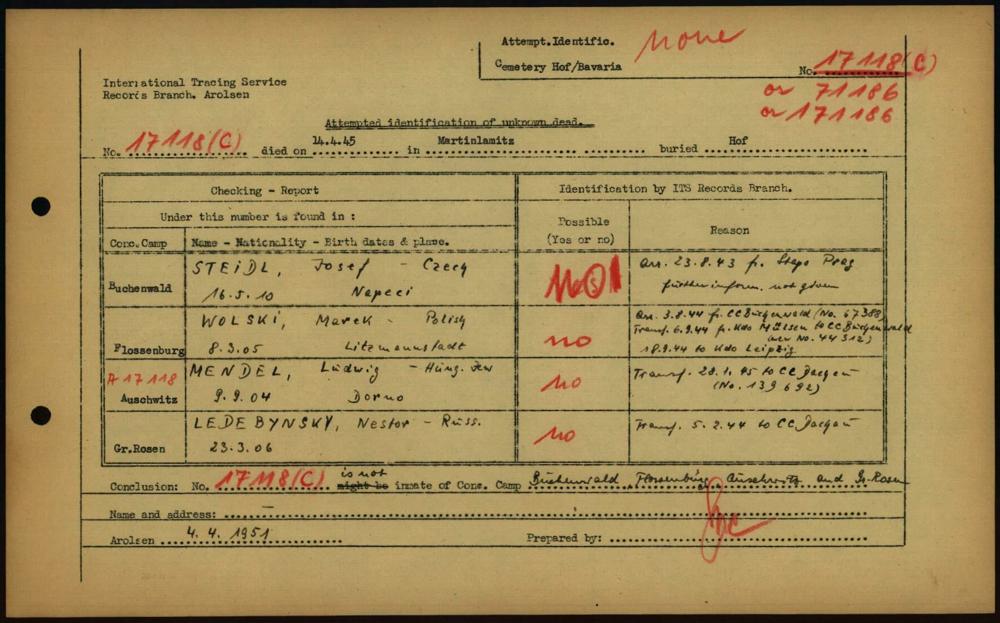 Attempt.Identific.
None
Cemetery Hof/Bavaria
No. 17118(C)
International Tracing Service
Records Branch. Arolsen
or 71186
or 171186
Attempted identification of unknown dead.
No. 17118(C) died on 14.4.45 in Martinlamitz buried Hof
Checking - Report
Identification by ITS Records Branch.
Under this number is found in :
Possible
(Yes or no)
Reason
Conc.Camp
Name - Nationality - Birth dates & place.
STEIDL, Josef - Czech
Buchenwald
16.5.10 Napeci
No
Arr. 23.8.43 fr. Stapo Prag
further inform. not given
WOLSKI, Marek - Polish
Flossenburg
8.3.05 Litzmannstadt
no
Arr. 3.8.44 fr. CC Buchenwald (No. 67388)
Transf. 6.9.44 fr. Kdo Mülsen to CC Buchenwald
No. 44312)
18.9.44 to Kdo Leipzig
A 17118
MENDEL, Ludwig - Hung. Jew
Auschwitz
9.9.04 Dorno
no
Transf. 28.1.45 to CC Dachau
(No. 139692)
LEDEBYNSKY, Nestor - Russ.
Gr.Rosen
23.3.06
no
Transf. 5.2.44 to CC Dachau
Conclusion: No. 17118(C) is not might be inmate of Conc. Camp Buchenwald, Flossenbürg, Auschwitz and Gr. Rosen
Name and address: —
Arolsen 4.4.1951
Prepared by: